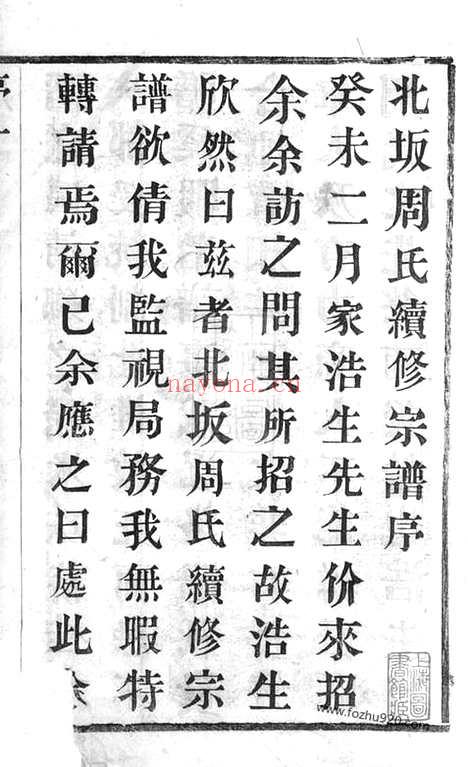 北坂周氏續修宗譜序
癸未二月家浩生先生份來招
余余訪之問其所招之故浩生
欣然曰茲者北坂周氏續修宗
譜欲倩我監視局務我無暇特
轉請焉爾已余應之曰處此余
nayona.cn
上海圖書館藏
www.fozhu920.com